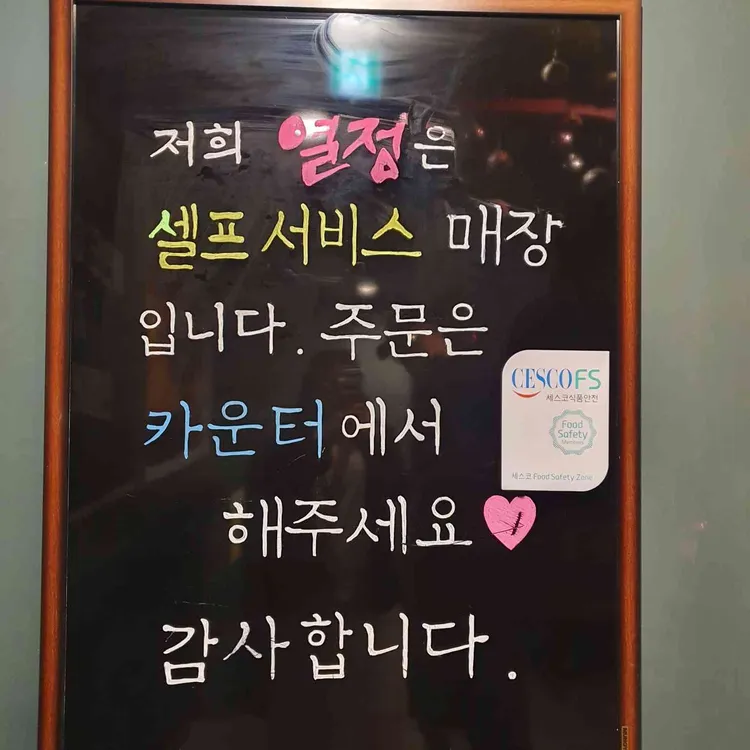 저희 열정은
셀프 서비스 매장
입니다. 주문은
카운터에서
해주세요
감사합니다.
CESCO FS
세스코식품안전
Food
Safety
Members
세스코 Food Safety Zone